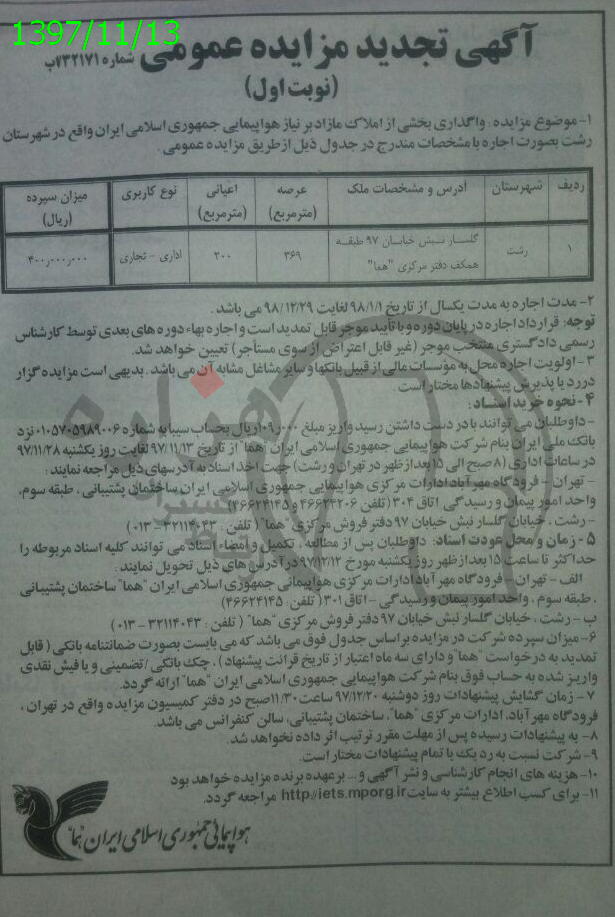 1397/11/13
آگهی تجدید مزایده عمومی شماره ۲۳۲۱۷۱ب
(نوبت اول)
۱- موضوع مزایده : واگذاری بخشی از املاک مازاد بر نیاز هواپیمایی جمهوری اسلامی ایران واقع در شهرستان
رشت بصورت اجاره با مشخصات مندرج در جدول ذیل از طریق مزایده عمومی .
ردیف شهرستان آدرس و مشخصات ملک عرصه (مترمربع) اعیانی (مترمربع) نوع کاربری میزان سپرده (ریال)
۱ رشت گلسار نبش خیابان ۹۷ طبقه همکف دفتر مرکزی "هما" ۳۶۹ ۲۰۰ اداری - تجاری ۴۰۰٫۰۰۰٫۰۰۰
۲- مدت اجاره به مدت یکسال از تاریخ ۹۸/۱/۱ لغایت ۹۸/۱۲/۲۹ می باشد .
توجه : قرارداد اجاره در پایان دوره و با تأیید موجر قابل تمدید است و اجاره بهاء دوره های بعدی توسط کارشناس
رسمی دادگستری منتخب موجر (غیر قابل اعتراض از سوی مستأجر) تعیین خواهد شد.
۳- اولویت اجاره محل به مؤسسات مالی از قبیل بانکها و سایر مشاغل مشابه آن می باشد . بدیهی است مزایده گزار
در رد یا پذیرش پیشنهادها مختار است .
۴- نحوه خرید اسناد :
- داوطلبان می توانند با در دست داشتن رسید واریز مبلغ ریال بحساب سیبا به شماره ۰۱۰۵۷۰۵۹۸۹۰۰۶ نزد
بانک ملی ایران بنام شرکت هواپیمایی جمهوری اسلامی ایران "هما" از تاریخ ۹۷/۱۱/۱۳ لغایت روز یکشنبه ۹۷/۱۱/۲۸
در ساعات اداری (۸ صبح الی ۱۵ بعداز ظهر در تهران و رشت) جهت اخذ اسناد به آدرسهای ذیل مراجعه نمایند :
- تهران - فرودگاه مهرآباد ادارات مرکزی هواپیمایی جمهوری اسلامی ایران ساختمان پشتیبانی ، طبقه سوم،
واحد امور پیمان و رسیدگی اتاق ۳۰۴ (تلفن ۴۶۶۲۳۲۰۶ و ۴۶۶۲۴۱۴۵)
- رشت ، خیابان گلسار نبش خیابان ۹۷ دفتر فروش مرکزی "هما" ( تلفن : ۳۲۱۱۴۰۴۳ - ۰۱۳)
۵- زمان و محل عودت اسناد: داوطلبان پس از مطالعه ، تکمیل و امضاء اسناد می توانند کلیه اسناد مربوطه را
حداکثر تا ساعت ۱۵ بعداز ظهر روز یکشنبه مورخ ۹۷/۱۲/۱۲ در آدرس های ذیل تحویل نمایند :
الف - تهران - فرودگاه مهرآباد ادارات مرکزی هواپیمایی جمهوری اسلامی ایران "هما" ساختمان پشتیبانی
، طبقه سوم ، واحد امور پیمان و رسیدگی - اتاق ۳۰۱ ( تلفن : ۴۶۶۲۴۱۴۵)
ب - رشت ، خیابان گلسار نبش خیابان ۹۷ دفتر فروش مرکزی "هما" ( تلفن : ۳۲۱۱۴۰۴۳ - ۰۱۳)
۶- میزان سپرده شرکت در مزایده براساس جدول فوق می باشد که می بایست بصورت ضمانتنامه بانکی ( قابل
تمدید به درخواست "هما" و دارای سه ماه اعتبار از تاریخ قرائت پیشنهاد) ، چک بانکی / تضمینی و یا فیش نقدی
واریز شده به حساب فوق بنام شرکت هواپیمایی جمهوری اسلامی ایران "هما" ارائه گردد.
۷ - زمان گشایش پیشنهادات روز دوشنبه ۹۷/۱۲/۲۰ ساعت ۱۱/۳۰ صبح در دفتر کمیسیون مزایده واقع در تهران ،
فرودگاه مهرآباد، ادارات مرکزی "هما"، ساختمان پشتیبانی، سالن کنفرانس می باشد.
۸- به پیشنهادات رسیده پس از مهلت مقرر ترتیب اثر داده نخواهد شد.
۹- شرکت نسبت به رد یک یا تمام پیشنهادات مختار است.
۱۰- هزینه های انجام کارشناسی و نشر آگهی و ... بر عهده برنده مزایده خواهد بود
۱۱- برای کسب اطلاع بیشتر به سایت http://iets.mporg.ir مراجعه گردد.
هواپیمائی جمهوری اسلامی ایران "هما"
هزاره